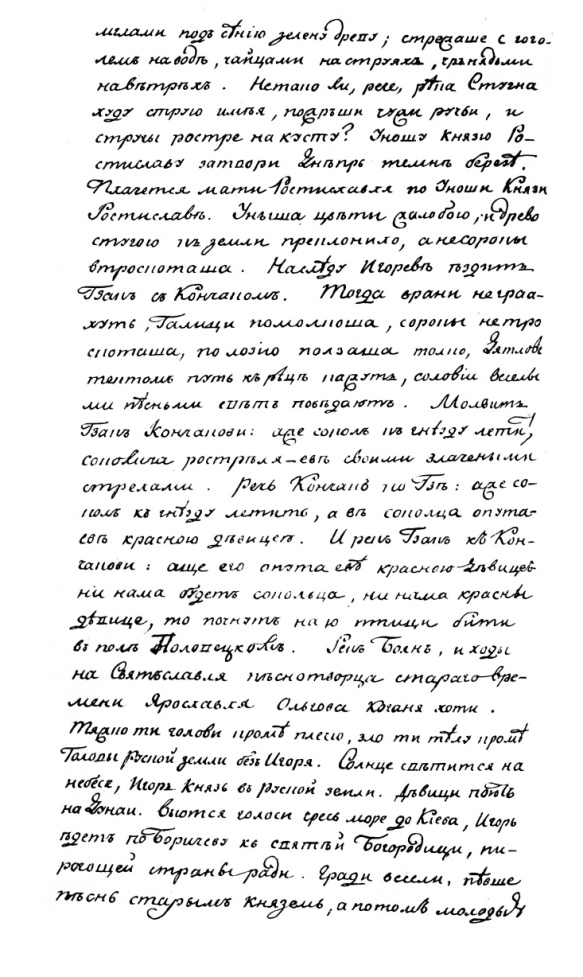 мглами подъ сѣнію зелену древу; стрежаше с гого-
лемъ на водѣ, чайцами на струяхъ, чрьнядьми
на вѣтрѣхъ. Не тако ли, рече, рѣка Стугна
худу струю имѣя, пожръши чужи ручьи, и
стругы ростре на кусту? Уношу Князю Ро-
стиславу затвори Днѣпрь темнѣ березѣ.
Плачется мати Ростиславля по Уноши Князи
Ростиславѣ. Уныша цвѣти жалобою, и древо
стугою къ земли преклонило, а не сорокы
втроскоташа. На слѣду Игоревѣ ѣздитъ
Гзакъ съ Кончакомъ. Тогда врани не граа-
хуть, Галици помолкоша, сорокы не тро
скоташа, по лозію ползаша толко, Дятлове
тектомъ путь къ рѣцѣ кажутъ, соловіи веселы
ми пѣсньми свѣтъ повѣдаютъ. Молвитъ
Гзакъ Кончакови: аже соколъ къ гнѣзду летитъ,
соколича ростреляевѣ своими злачеными
стрелами. Рече Кончакъ ко Гзѣ: аже со-
колъ къ гнѣзду летить, а вѣ сокольца опута-
евѣ красною дѣвицею. И рече Гзакъ къ Кон-
чакови: аще его опутаевѣ красною дѣвицею
ни нама будетъ сокольца, ни нама красны
дѣвице, то почнутъ наю птици бити
въ полѣ Половецкомъ. Рекъ Боянъ, и ходы
на Святъславля пѣснотворца стараго вре-
мени Ярославля Ольгова Коганя хоти.
Тяжко ти головы кромѣ плечю, зло ти тѣлу кромѣ
Головы Руской земли безъ Игоря. Солнце свѣтится на
небесе, Игорь Князь въ Руской земли. Дѣвици поютъ
на Дунаи. Вьются голоси чресъ море до Кіева, Игорь
ѣдетъ по Боричеву къ святѣй Богородици, пи-
рогощей страны ради. Гради весели, пѣвше
пѣснь старымъ Княземъ, а потомъ молодымъ